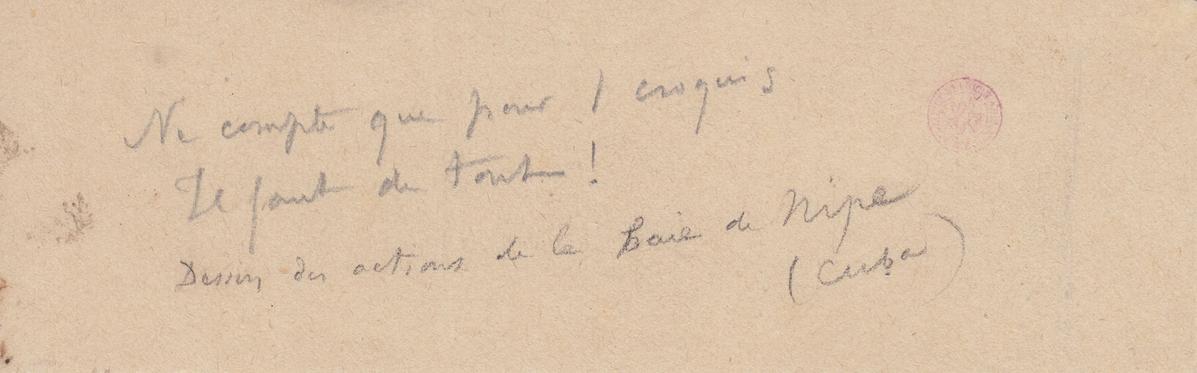 Ne compte que pour 1 croquis
Il faut de tout !
Dessin des actions de la Baie de Nipe
(Cuba)